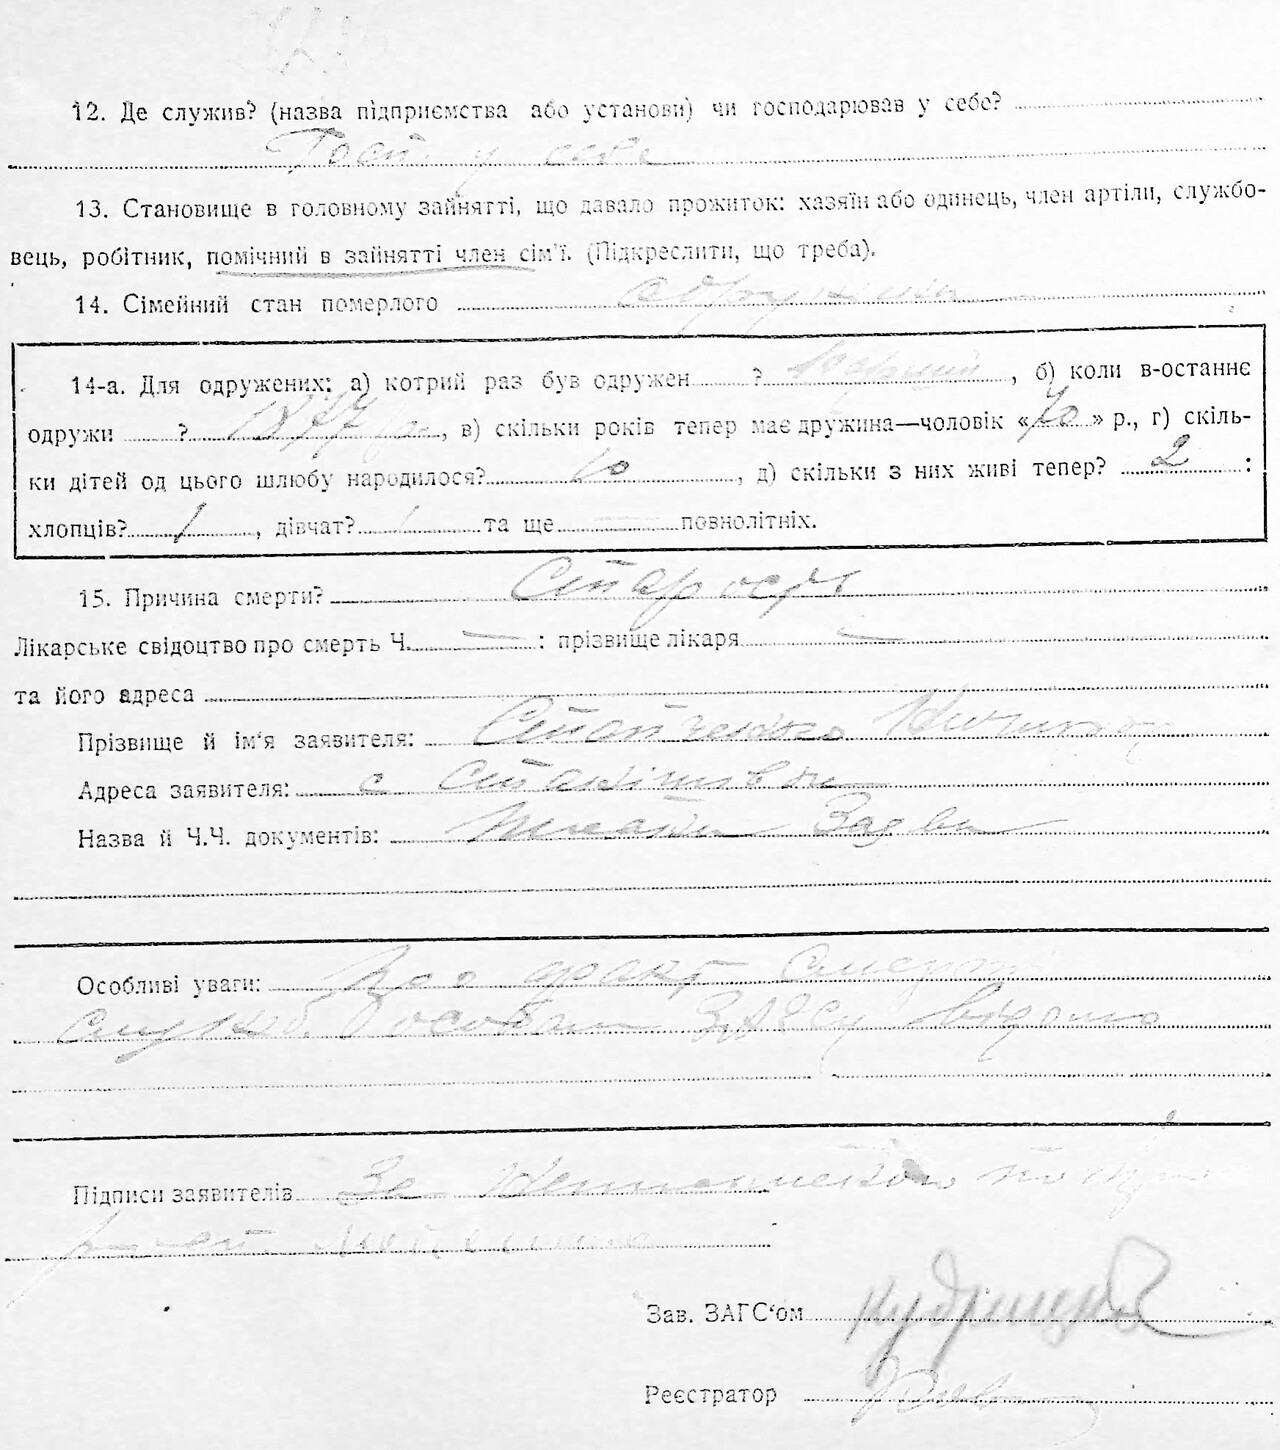 12. Де служив? (назва підприємства або установи) чи господарював у себе?
Госп. у себе
13. Становище в головному зайнятті, що давало прожиток: хазяїн або одинець, член артіли, службо-
вець, робітник, помічний в зайнятті член сім'ї. (Підкреслити, що треба).
14. Сімейний стан померлого
14-а. Для одружених: а) котрий раз був одружен ? первий, б) коли в-останнє
одружи ? 1877 р., в) скільки років тепер має дружина—чоловік «70» р., г) скіль-
ки дітей од цього шлюбу народилося? 10, д) скільки з них живі тепер? 2 :
хлопців? 1, дівчат? 1 та ще — повнолітніх.
15. Причина смерти? Старость
Лікарське свідоцтво про смерть Ч. — : прізвище лікаря —
та його адреса
Прізвище й ім'я заявителя:
Адреса заявителя: с
Назва й Ч.Ч. документів:
Особливі уваги: Про факт смерти
службовом ЗАГСу відомо
Підписи заявителів За
Зав. ЗАГС'ом Кудрицкий
Реєстратор